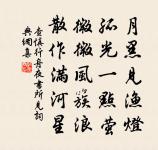 月黑見漁燈
孤光一點螢
微微風簇浪
散作滿河星
查慎行舟夜書所見詞
典網集